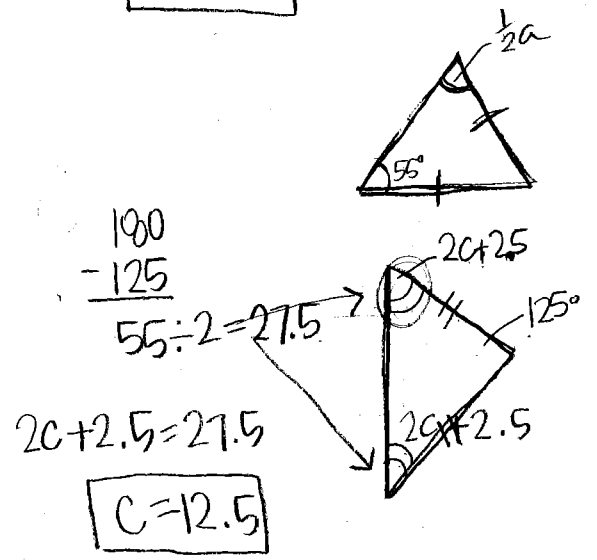 ½a
55°
180
-125
55÷2=27.5
2c+2.5
125°
2c+2.5
2c+2.5=27.5
C=12.5